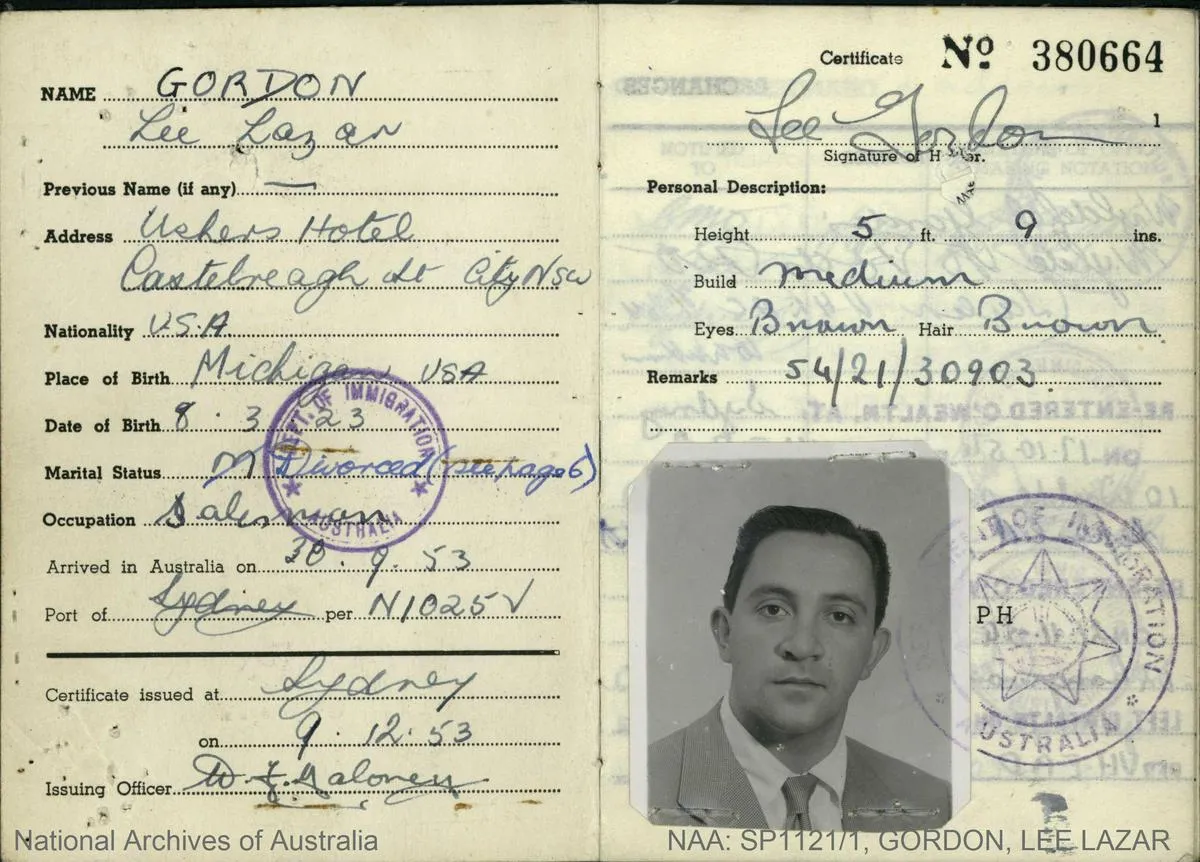 NAME GORDON
Lee Lazar
Previous Name (if any) —
Address Ushers Hotel
Castlereagh St City NSW
Nationality U.S.A
Place of Birth Michigan USA
Date of Birth 8 . 3 . 23
Marital Status M Divorced (see page 6)
Occupation Salesman
Arrived in Australia on 30 . 9 . 53
Port of Sydney per N1025V
Certificate issued at Sydney
on 9 . 12 . 53
Issuing Officer
DEPT. OF IMMIGRATION
AUSTRALIA
National Archives of Australia
Certificate No 380664
Lee Gordon
1
Signature of Holder.
Personal Description:
Height 5 ft. 9 ins.
Build medium
Eyes Brown Hair Brown
Remarks 54/21/30903
PH
OF IMMIGRATION
AUSTRALIA
NAA: SP1121/1, GORDON, LEE LAZAR